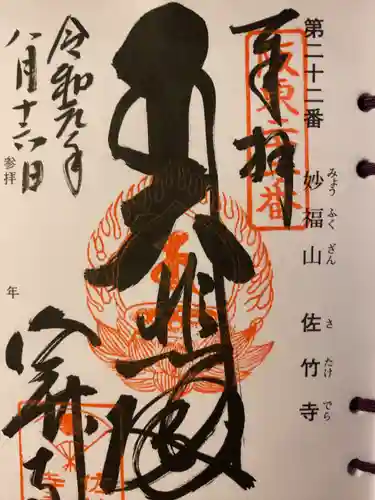 第二十二番 妙福山 佐竹寺
みょう ふく ざん さ たけ でら
奉拝
坂東二十二番
大悲殿
佐竹寺
令和元年
八月十六日
参拝
年